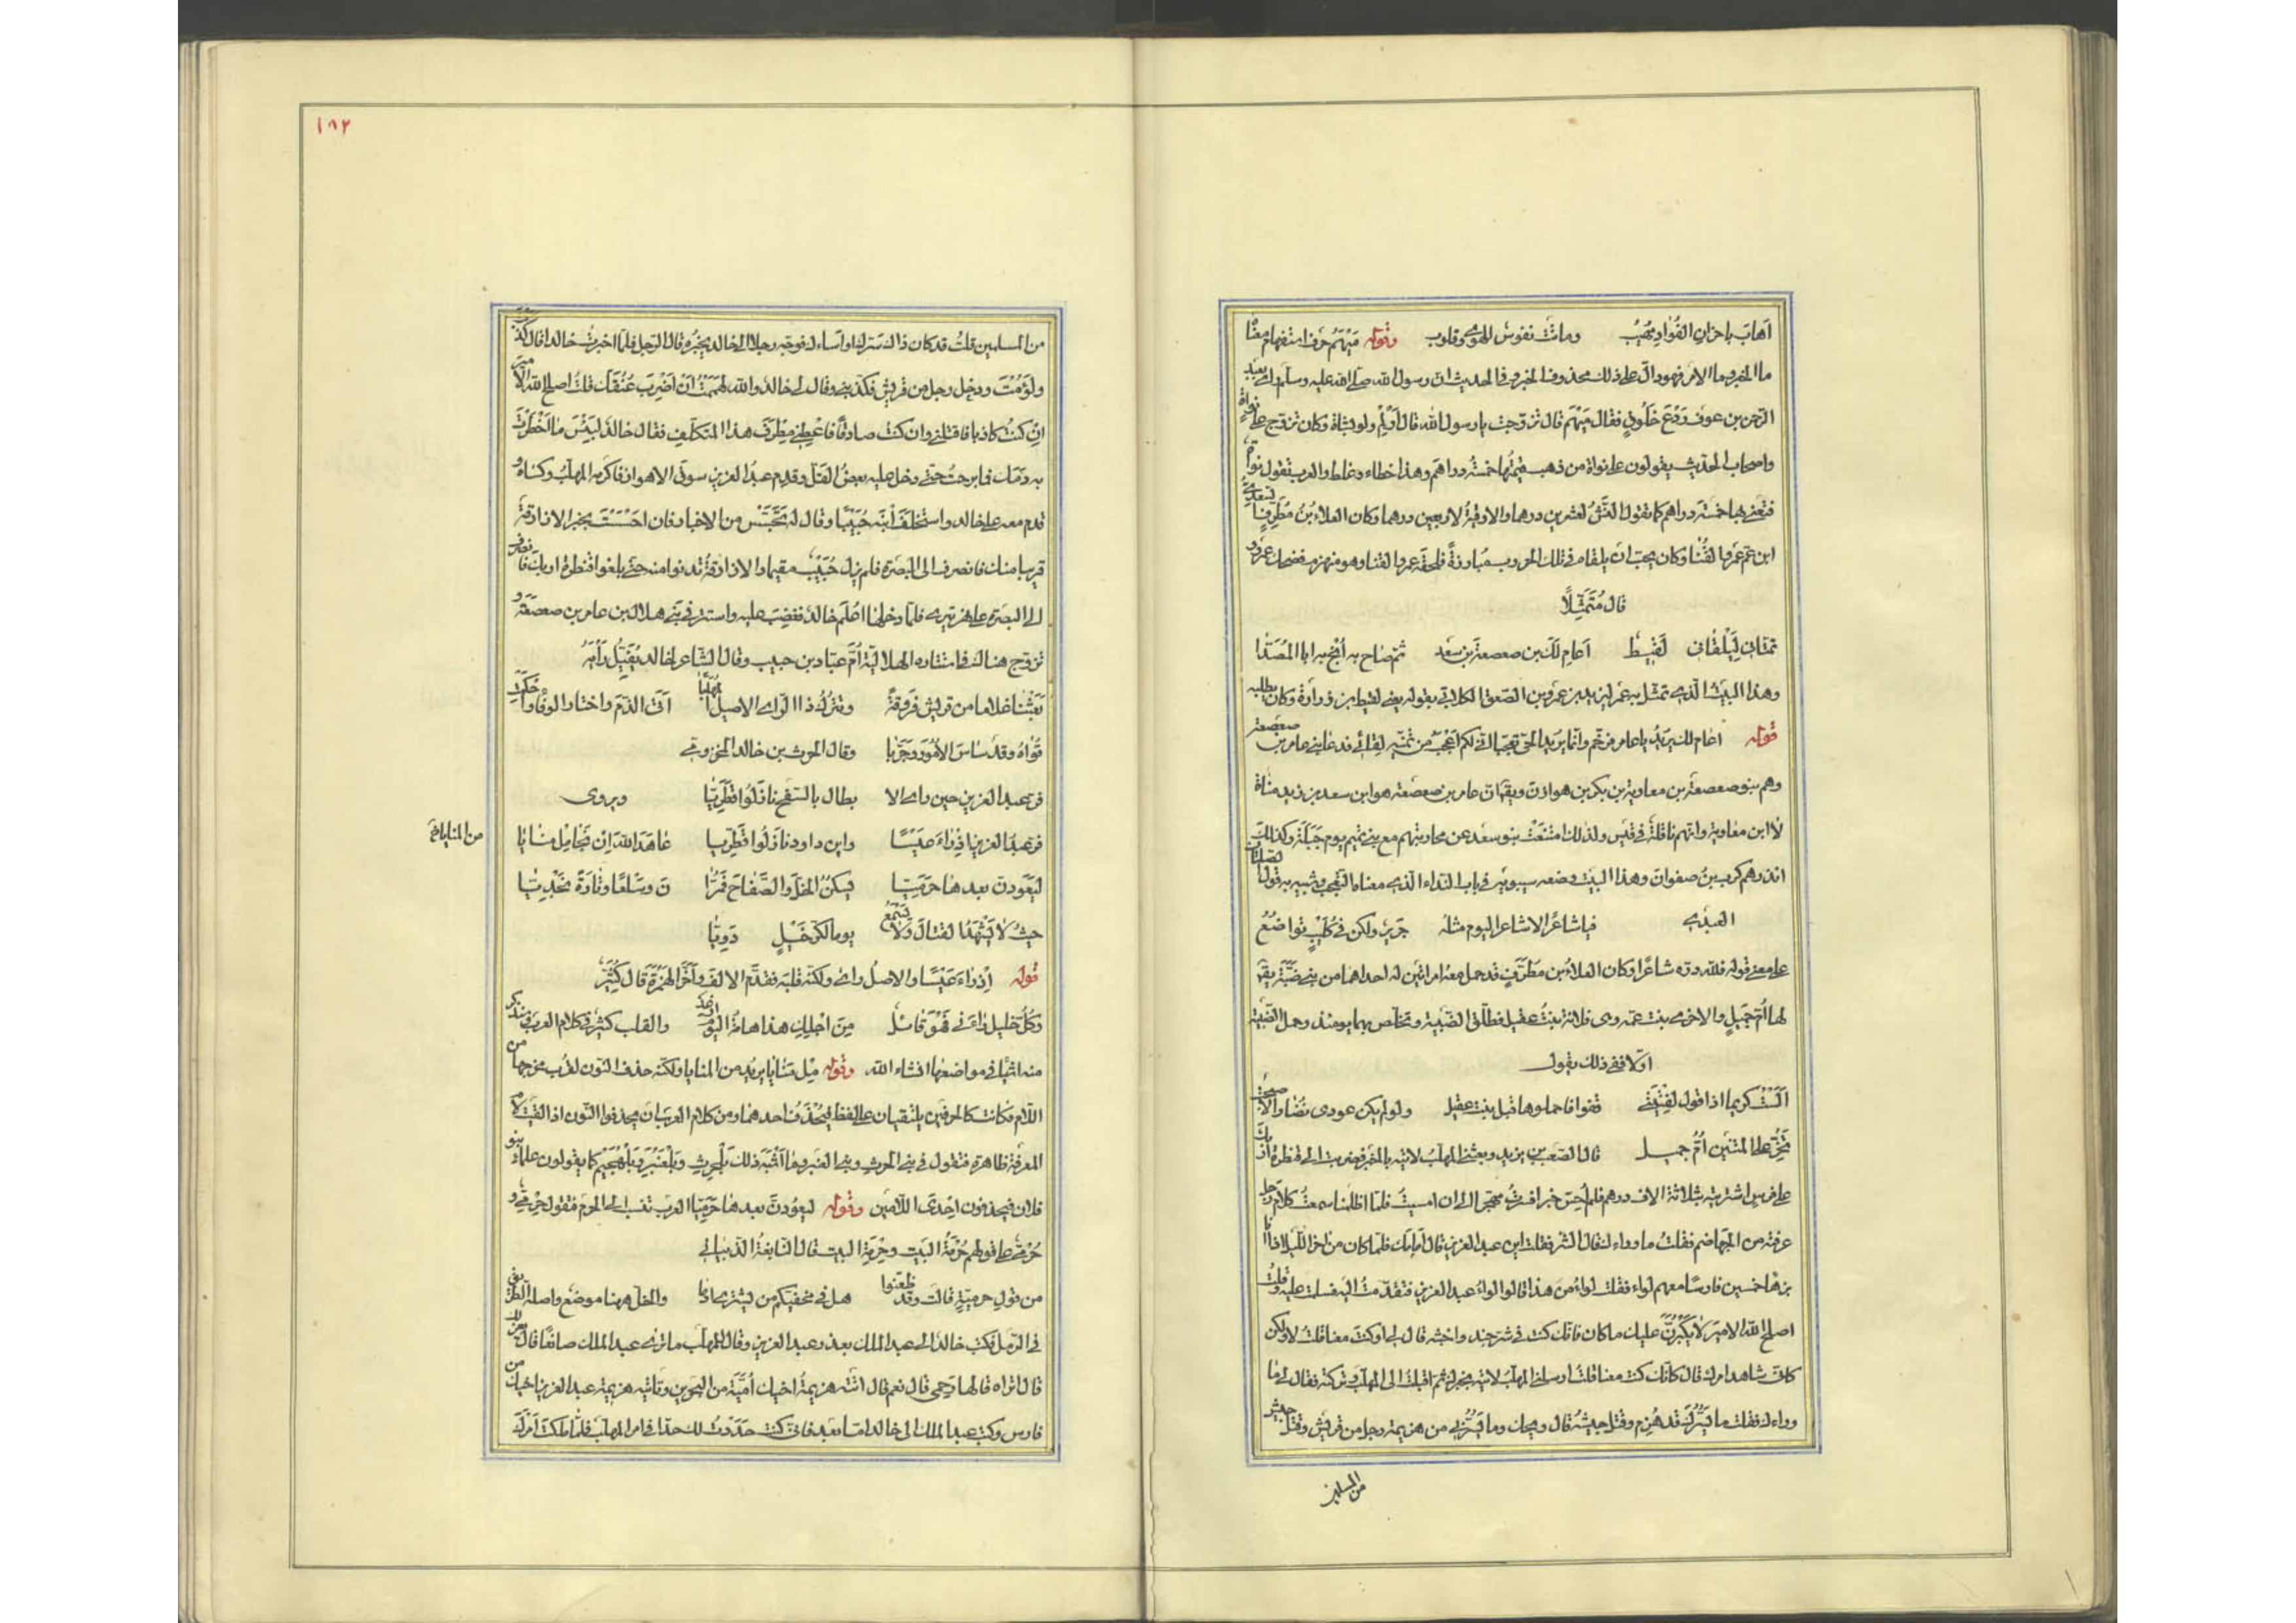 اَهابَ باحزانِ الفُؤادِ مُهيبُ وماتت نفوس للهوى وقلوب وقوله مَهْيَمْ حرف استفهام معناه
ما الخبر وما الامر فهو دالّ على ذلك محذوف الخبر وفى الحديث ان رسول الله صلى الله عليه وسلم راى بعبد
الرحمن بن عوف رَدْعَ خَلُوقٍ فقال مَهْيَم قال تزوجت يا رسول الله قال اَوْلِمْ ولو بشاة وكان تزوج على نواة
واصحاب الحديث يقولون على نواة من ذهب قيمتُها خمسةُ دراهم وهذا خطاء وغلط والعرب تقول نواة
فتعنى بها خمسة دراهم كما تقول النَشُّ لعشرين درهما والاوقيةُ لاربعين درهما وكان العلاءُ بنُ مُطرِّفٍ السَّعدىُّ
ابن عم عمرو القنا وكان يحب ان يلقاه فى تلك الحروب مبارزةً فلحقه عمرو القنا وهو منهزم فضحك عمرو و
قال مُتَمَثِّلًا
تمنّانى لِيَلْقانى لَقيط اَعامِ لك بن صعصعة بن سعد ثمّ صاح به اُنجُ به ابا المُصَدّا
وهذا البيت الذى تمثل به عمرو ليزيد بن عمرو بن الصعق الكلابى يقوله يعنى لقيط بن زرارة وكان يطلبه
قوله اعام لك يريد يا عامر فرخم وانما يريد الحىَّ تعجبا اى لكم اَعْجَبُ من تمنّيه لقائى فدعا بنى عامر بن صعصعة
وهم بنو صعصعة بن معاوية بن بكر بن هوازن ويقال ان عامر بن صعصعة هو ابن سعد بن زيد مناة
لا ابن معاوية وانهم ناقلةٌ فى قيس ولذلك امتنعتْ بنو سعد عن محاربتهم مع بنى تميم يوم جَبَلَة وكذلك
انذرهم كرب بن صفوان وهذا البيت وضعه سيبويه فى باب النداء الذى معناه التعجب وشبيه به قولُ الصلتان
العبدى فيا شاعرًا لا شاعرَ اليوم مثله جريرٌ ولكن فى كُلَيْبٍ تواضُعُ
على معنى قوله فلله دره شاعرًا وكان العلاءُ بن مطرّفٍ قد حمل معه امراتين له احداهما من بنى ضبّة يقال
لها اُمُّ جَميلٍ والاخرى بنت عمه وهى فلانة بنتُ عقيل فطلّق الضبّية وتخلّص بهما يومئذ وحمل الضبّيّة
اوّلا ففى ذلك يقول
اَلَسْتُ كريما اذ اقول لفِتْيَتى قفوا فاحملوها قبل بنت عقيل ولو لم يكن عودى نُضارا لاصبحت
تَجُرُّ على المتنين اُمُّ جميل قال الصعب بن يزيد وبعثنى المهلّبُ لاتيه بالخبر فضربت الى قنطرة اربك
على فرس اشتريته بثلاثة الاف درهم فلم اُحِسّ خبرا فسرتُ مهجّرا الى ان امسيت فلما اظلمنا سمعت كلام رجل
عرفته من الجهاضم فقلتُ ما وراءك قال الشر فقلت اين عبد العزيز قال اَمامَك فلما كان من اخر الليل اذا انا
بزهاء خمسين فارسًا معهم لواء فقلت لواءُ من هذا قالوا لواءُ عبد العزيز فتقدّمتُ اليه فسلمت عليه وقلتُ
اصلح الله الامير لا يَكْبُرَنَّ عليك ما كان فانك كنت فى شرّ جند واخبثه قال لى اوكنت معنا قلتُ لا ولكن
كانى شاهد امرك قال كانّك كنت معنا قلتُ ارسلنى المهلب لاتيه بخبرك ثم اقبلتُ الى المهلّب وتركته فقال لى ما
وراءك فقلت ما يَسُرُّك قد هُزِم وقُتل جيشُه قال ويحك وما يَسُرُّنى من هزيمة رجل من قريش وقتل جيش
من المسلمين
١٨٢
من المسلمين قلتُ قد كان ذاك سَرَّك او اَساءَك فوجّه رجلا الى خالد يخبره قال الرجل فلما اخبرتُ خالدا قال كذبتَ
ولَؤُمْتَ ودخل رجل من قريش فكذبنى وقال لى خالدٌ والله لهمَمتُ اَنْ اَضْرِبَ عُنُقَك قلتُ اصلح الله الامير
ان كنتُ كاذبا فاقتلنى وان كنت صادقًا فاَعْطِنى مِطْرَفَ هذا المتكلّفِ فقال خالد لَبِئْسَ ما اَخْطَرْتَ
به دَمَك فما برحتُ حتى دخل عليه بعضُ الفَلّ وقدم عبدُ العزيز سوق الاهواز فاكرمه المهلّب وكساه و
قدم معه على خالد واستخلفَ ابنَه حُبَيْبًا وقال له تَجَسَّسْ من الاخبار فان احْسَسْتَ بخبر الازارقة
قريبا منك فانصرف الى البصرة فلم يزل حُبَيْبٌ مقيما والازارقةُ تدنوا منه حتى بلغوا قنطرة اربك فانصرف
الى البصرة على نهر تيرى فلما دخلها اُعْلِمَ خالدٌ فغضب عليه واستتر فى بنى هلال بن عامر بن صعصعة و
تزوج هناك فى استتاره الهلالية اُمَّ عبّاد بن حبيب وقال الشاعر لخالد يُفَيِّلُ رَأْيَهُ
بَعَثْنا غلاما من قريش فَروقةً وتتركُ ذا الراى الاصيل المُهَلَّبا اَبَى الذَّمَّ واختار الوفاءَ واَحكمتْ
قُواهُ وقد ساسَ الاُمورَ وجَرَّبا وقال الحرث بن خالد المخزومى
فرّ عبد العزيز حين راى الا بطال بالسفح نازَلُوا قَطَرِيّا ويروى
فرّ عبد العزيز اذ راءَ عيسًا وابن داود نازَلُوا قَطَرِيّا عاهَدَ اللهَ اِنْ نَجا مِلْ مَنايا
من المنايا نخ
لَيَعُودَنَّ بعدها حَرَمِيّا يسكنُ الخَلَّ والصِّفاحَ فمَرّا نَ وسَلْعًا وتارَةً نَجْديّا
حيثُ لا يَشْهَدُ القتالَ ولا يسمع يوما لكرّ خَيْلٍ دَوِيّا
قوله اِذْ راءَ عيسًا والاصلُ راى ولكنه قلبه فقدَّم الالف واَخَّرَ الهمزةَ قال كُثَيّر
وكلُّ خليلٍ راءَنى فَهْوَ قائلٌ مِنَ اَجلِكِ هذا هامةُ اليَوْمِ او غد والقلب كثير فى كلام العرب نذكر
منه اشيا فى مواضعها انشاء الله وقوله مِلْ مَنايا يريد من المنايا ولكنه حذف النون لقرب مخرجها من
اللام فكانت كالحرفين يلتقيان على لفظ فيُحْذَفُ احدهما ومن كلام العرب ان يحذفوا النون اذا لقيت لام
المعرفة ظاهرة فتقول فى بنى الحرث وبنى العنبر وما اَشْبَهَ ذلك بَلْحرث وبَلْعَنْبَر وبَلْهُجَيْم كما يقولون علماءِ بنو
فلان فيحذفون اِحْدَى اللامَين وقوله ليعُودَنَّ بعدها حَرَمِيّا العرب تنسب الى الحرم فتقول حِرْمىّ و
حُرْمىّ على قولهم حُرْمَةُ البَيْت وحِرْمَةُ البيت قال النابغةُ الذبيانى
من قولِ حرميّةٍ قالت وقد ظعنوا هل فى مخفيكم من يشترى ادَما والخلّ ههنا موضع واصله الطريق
فى الرمل فكتب خالد الى عبد الملك بعذر عبد العزيز وقال للمهلّب ما ترى عبد الملك صانعًا قال يعزلك
قال اتراه قاطعا رحمى قال نعم قال اتته هزيمةُ اخيك اُمَيّة من البحرين وتاتيه هزيمة عبد العزيز اخيك من
فارس وكتب عبد الملك الى خالد امّا بعد فانى كنت حَدَدْتُ لك حدّا فى امر المهلّب فلمّا ملكتَ اَمْرَكَ